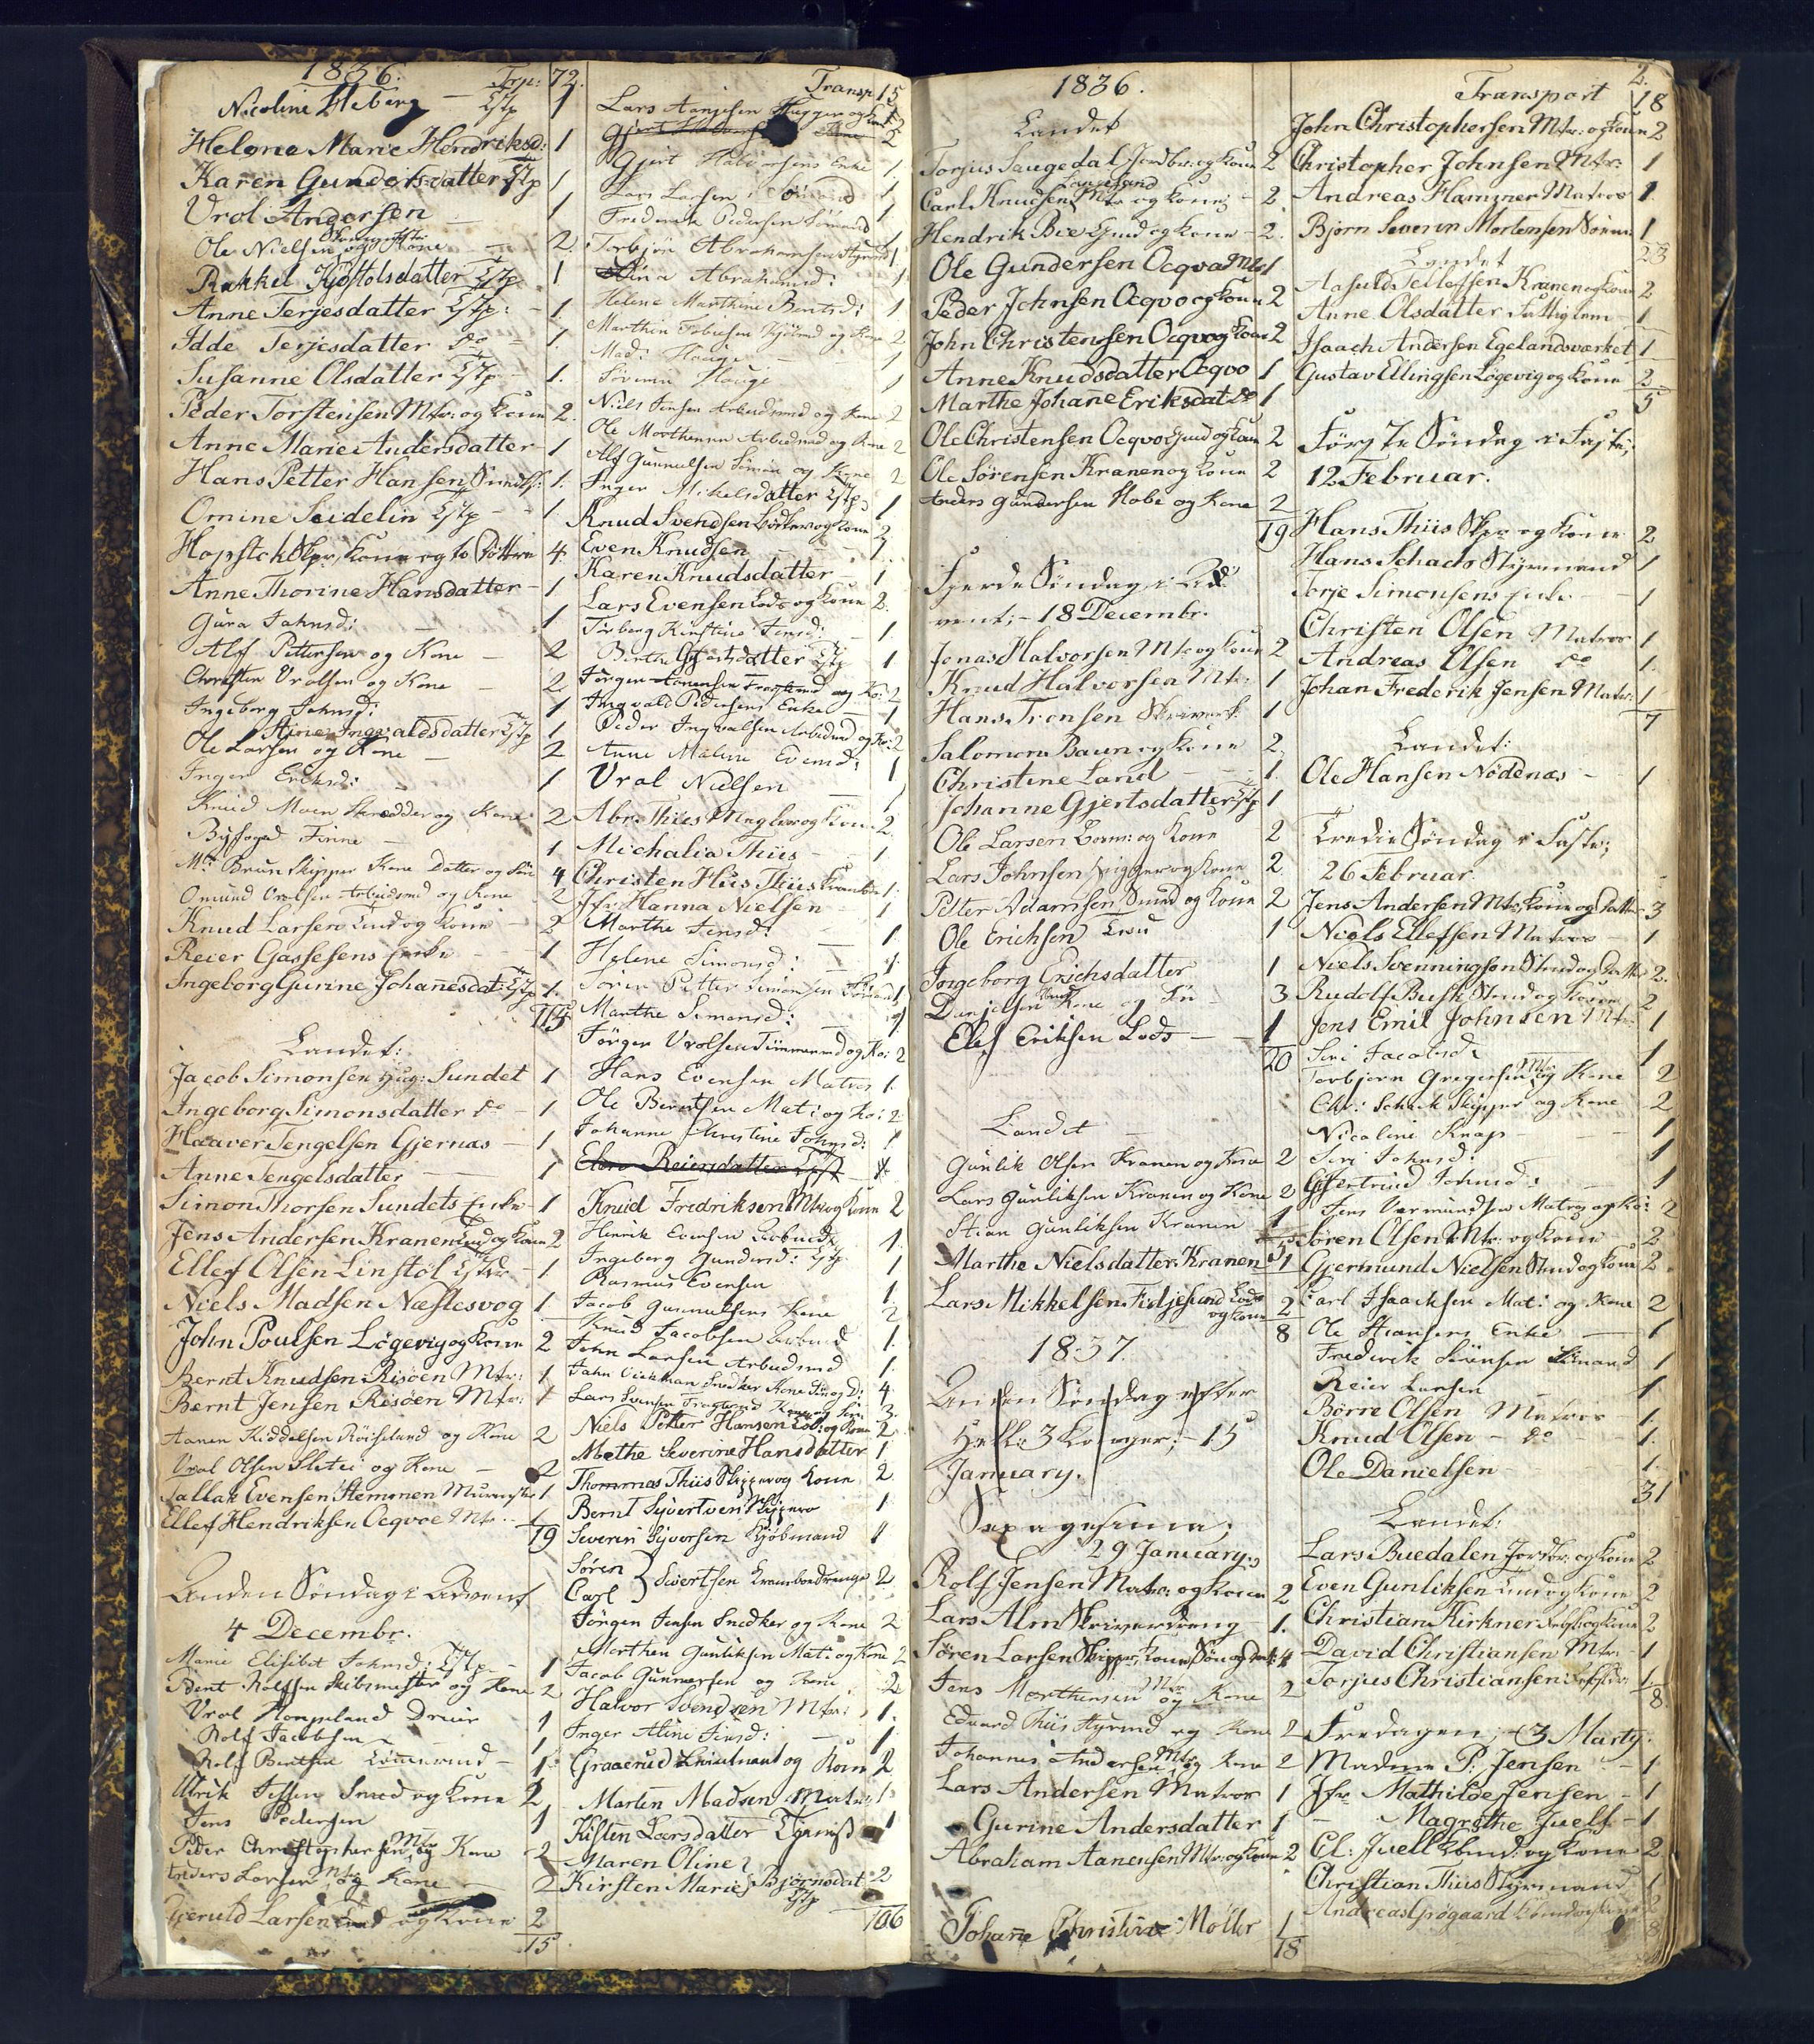 1836.
Trp: 72.
Nicoline Heberg - Tjtp 1
Helene Marie Hendriksd: 1
Karen Gundersdatter Tjtp 1
Vrol Andersen 1
Ole Nielsen og Kone 2.
Rakkel Kjøstolsdatter Tjtp 1
Anne Terjesdatter Tjtp: - 1.
Idde Terjesdatter do - 1.
Susanne Olsdatter Tjtp - 1.
Peder Torstensen Mtr: og Kone 2.
Anne Marie Andersdatter - 1
Hans Petter Hansen 1.
Omine Seidelin Tjtp - 1.
Hopstok Skpr, Kone og to Døttre 4.
Anne Thorine Hansdatter - 1
Gura Jahnsd: - 1
Alf Pettersen og Kone - 2
Christen Vrolsen og Kone - 2
Ingeborg Jahnsd: 1
Aine Ingevaldsdatter Tjtp 1
Ole Larsen og Kone - 2
Inger Eriksd: 1
Knud Moen Skrædder og Kone 2
Byfoged Finne - 1
Mr Brun Skipper Kone Datter og Sön 4
Omund Vrolsen Arbeidsmd og Kone 2
Knud Larsen og Kone - 2
Reier Gassesens Enke - 1
Ingeborg Gurine Johanesdat: Tjtp 1.
115
Landet:
Jacob Simonsen Sundet 1
Ingeborg Simonsdatter do - 1
Haaver Tengelsen Gjernæs - 1
Anne Tengelsdatter - 1
Simon Thorsen Sundets Enke - 1
Jens Andersen Kranen og Kone 2
Ellef Olsen Linstøl - 1
Niels Madsen Næslesvog 1
John Poulsen Løgevig og Kone 2
Bernt Knudsen Risøen Mtr: 1
Bernt Jensen Risøen Mtr: 1
Aanen Kiddelsen Röiseland og Kone 2
Vrol Olsen Sletei og Kone - 2
Tallak Evensen Stemenen Murmester 1
Ellef Hendriksen Ocqvoe Mtr - 1
19
Anden Søndag i Advent
4 Decembr.
Marie Elisebet Jahnsd: Tjtp - 1
Bent Rolfsen Skibsmester og Kone 2
Vrol Mogeland Dreier 1
Rolf Jacobsen 1
Rolf Bentsen Tömmermd - 1.
Ulrik Jessen Smed og Kone 2
Jens Pedersen 1
Peder Christophersen Mtr og Kone - 2
Anders Larsen Mtr og Kone - 2
Gjeruld Larsen og Kone 2
15

Transp: 15
Lars Aanesen Hugger og Kone 2
Gjert Halvorsens Enke 1.
Lars Larsen 1
Frederik Pedersen Sömand 1
Torbjön Abrahamsen Styrmd 1.
Stina Abrahamsd: 1
Helene Marthine Bentsd: 1
Marthin Tobiesen Kjöbmd og Kone 2
Mad: Hauge 1
Sörinn Hauge 1
Niels Jensen Arbeidsmd og Kone 2
Ole Morthensen Arbeidsmd og Kone 2
Alf Gunnulsen Söman og Kone 2
Inger Mikelsdatter Tjtp: 1
Knud Svendsen Bödker og Kone 2
Even Knudsen - - 1.
Karen Knudsdatter - 1
Lars Evensen Lods og Kone 2.
Torberg Kirstine Jensd: - 1.
Berthe Gjertsdatter Tjtp 1
Jörgen Aanensen Fragtmd og Ko: 2
Ingvald Pedersens Enke - 1
Peder Ingvalsen Arbeidsmd og Ko: 2
Anne Maline Evensd: 1
Vrol Nielsen - 1
Abr: Thiis Mægler og Kone 2.
Michalia Thiis - - 1
Christen Hiis Thiis Krambdr 1.
Jfr Hanna Nielsen - 1
Marthe Jensd: - 1
Helene Simonsd: - 1.
Sören Petter Simonsen Sömand 1
Marthe Simonsd: - 1
Jörgen Vrolsen Tömmermd og Ko: 2
Hans Evensen Matros 1.
Ole Berntsen Mat: og Ko: 2
Johanne Christine Johnsd: 1
Elen Reiersdatter Tjst
Knud Fredriksen Mtr og Kone 2
Henrik Evensen Arbmd 1.
Ingeborg Gundersd: Tjtp 1
Rasmus Evensen 1.
Jacob Gunnulsens Kone 2
Knud Jacobsen Arbmd 1.
John Larsen Arbeidsmd 1.
Jahn Vickman Snedker Kone Sön og D: 4.
Lars Svensen Fragtmand Kone og Sön 3.
Niels Petter Hansen Lods og Kone 2
Methe Severine Hansdatter 1
Thommas Thiis Skipper og Kone 2
Bernt Syvertsen Skipper 1
Severin Syversen Kjøbmand 1
Søren } Sivertsen Kramboedrenge 2
Carl
Jörgen Jensen Snedker og Kone 2
Morthen Gunliksen Mat: og Kone 2
Jacob Gunnersen og Kone 2
Halvor Svendsen Mtr: 1.
Inger Aline Jensd: - 1
Graaerud Lieutnant og Kone 2
Morten Madsen Matr: 1
Kisten Larsdatter 1
Maren Oline }
Kirsten Marie } Bjørnsdat 2
Tjtp
106

1836.
Landet
Torjus Saugedal Jordbr: og Kone 2
Carl Knudsen Mtr og Kone - 2.
Hendrik Boe og Kone - 2.
Ole Gundersen Ocqvo Mtr 1
Peder Johnsen Ocqvo og Kone 2
John Christensen Ocqvo og Kone 2
Anne Knudsdatter Ocqvo 1
Marthe Johane Eriksdat do 1
Ole Christensen Ocqvo og Kone 2
Ole Sørensen Kranen og Kone 2
Anders Gundersen Hobe og Kone 2
19
Fjerde Søndag i Ad
vent; - 18 Decembr.
Jonas Halvorsen Mtr og Kone 2
Knud Halvorsen Mtr: 1
Hans Tronsen 1
Salomon Baun og Kone 2.
Christine Land - - 1.
Johanne Gjertsdatter Tjtp 1
Ole Larsen og Kone 2
Lars Johnsen Hugger og Kone 2.
Petter Adamsen Smed og Kone 2
Ole Erichsen 1
Ingeborg Erichsdatter 1
Danielsen Kone og - 3
Elef Eriksen Lods - - 1
20
Landet -
Gunlik Olsen Kranen og Kone 2
Lars Gunliksen Kranen og Kone 2
Stian Gunliksen Kranen 1
Marthe Nielsdatter Kranen 1
Lars Mikkelsen Fidjesund Lods
og Kone 2
8
1837.
Anden Søndag efter
Hell: 3 Konger; - 15
January.
Sexagesima;
29 January.
Rolf Jensen Matr: og Kone 2
Lars Alm Skriverdreng - 1.
Søren Larsen Skipper, Kone Søn og Dat: 4
Jens Morthensen Mtr og Kone 2
Edvard Thiis Styrmd og Kone 2
Johannes Andersen Mtr og Kone 2
Lars Andersen Matros 1
Gurine Andersdatter 1
Abraham Aanensen Mtr: og Kone 2
Johane Christine Møller 1
18

2.
Transport 18
John Christophersen Mtr: og Kone 2
Christopher Johnsen Mtr: 1
Andreas Hammer Matros 1.
Bjørn Severin Mortensen 1
23
Landet
Aasuld Tellefsen Kranen og Kone 2
Anne Olsdatter Fattiglem - 1
Isaach Andersen Egelandsværket 1
Gustav Ellingsen Løgevig og Kone 2
5
Første Søndag i Faste;
12 Februar.
Hans Thiis Skpr og Kone 2
Hans Schach Styrmand 1
Torje Simonsens Enke - 1
Christen Olsen Matros 1
Andreas Olsen do 1.
Johan Frederik Jensen Matr: 1
7
Landet:
Ole Hansen Nødenæs - 1
Tredie Søndag i Faste;
26 Februar.
Jens Andersen Mtr, Kone og Datter 3
Niels Ellefsen Matros - 1
Niels Svenningsen og Datter 2.
Rudolf Busk og Kone 2
Jens Emil Johnsen Mtr: 1
Siri Jacobsd: 1
Torbjørn Gregersen Mtr og Kone 2
Chr: Schack Skipper og Kone 2
Nicoline Knap - - 1
Siri Jahnsd: 1
Gjertrud Johnsd: - 1
Jens Værmundsen Matros og Ko: 2
Søren Olsen Mtr: og Kone 2
Gjermund Nielsen og Kone 2
Carl Isaacksen Mat: og Kone 2
Ole Stiansens Enke - 1
Frederik Sörensen Sömand 1
Reier Larsen 1
Börre Olsen Matros - 1.
Knud Olsen - do - 1.
Ole Danielsen 1.
31
Landet:
Lars Buedalen Jordbr: og Kone 2
Even Gunliksen og Kone 2
Christian Kirkner og Kone 2
David Christiansen Mtr: 1
Torjus Christiansen 1
8.
Fredagen; - 3 Marty:
Madme P: Jensen - 1
Jfr Mathilde Jensen - 1
- Magrethe Juell - 1
El: Juell Kbmd: og Kone 2
Christian Thiis Styrmand 1
Andreas Grøgaard 2
8